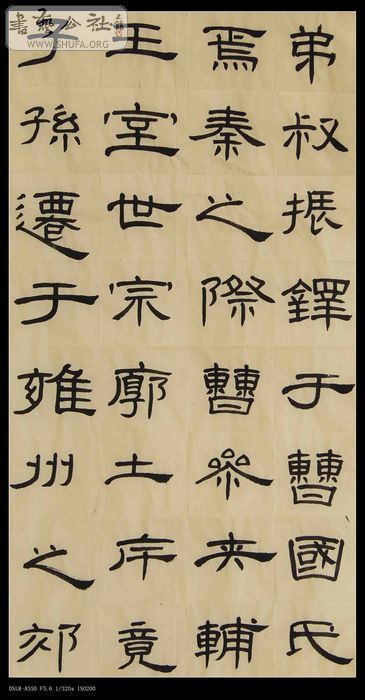 弟叔振鐸于曹國氏
焉秦之際曹參夾輔
王室世宗廓土斥竟
子孫遷于雍州之郊
公社
WWW.SHUFA.ORG
DSLR-A550 F5.6 1/320s ISO200